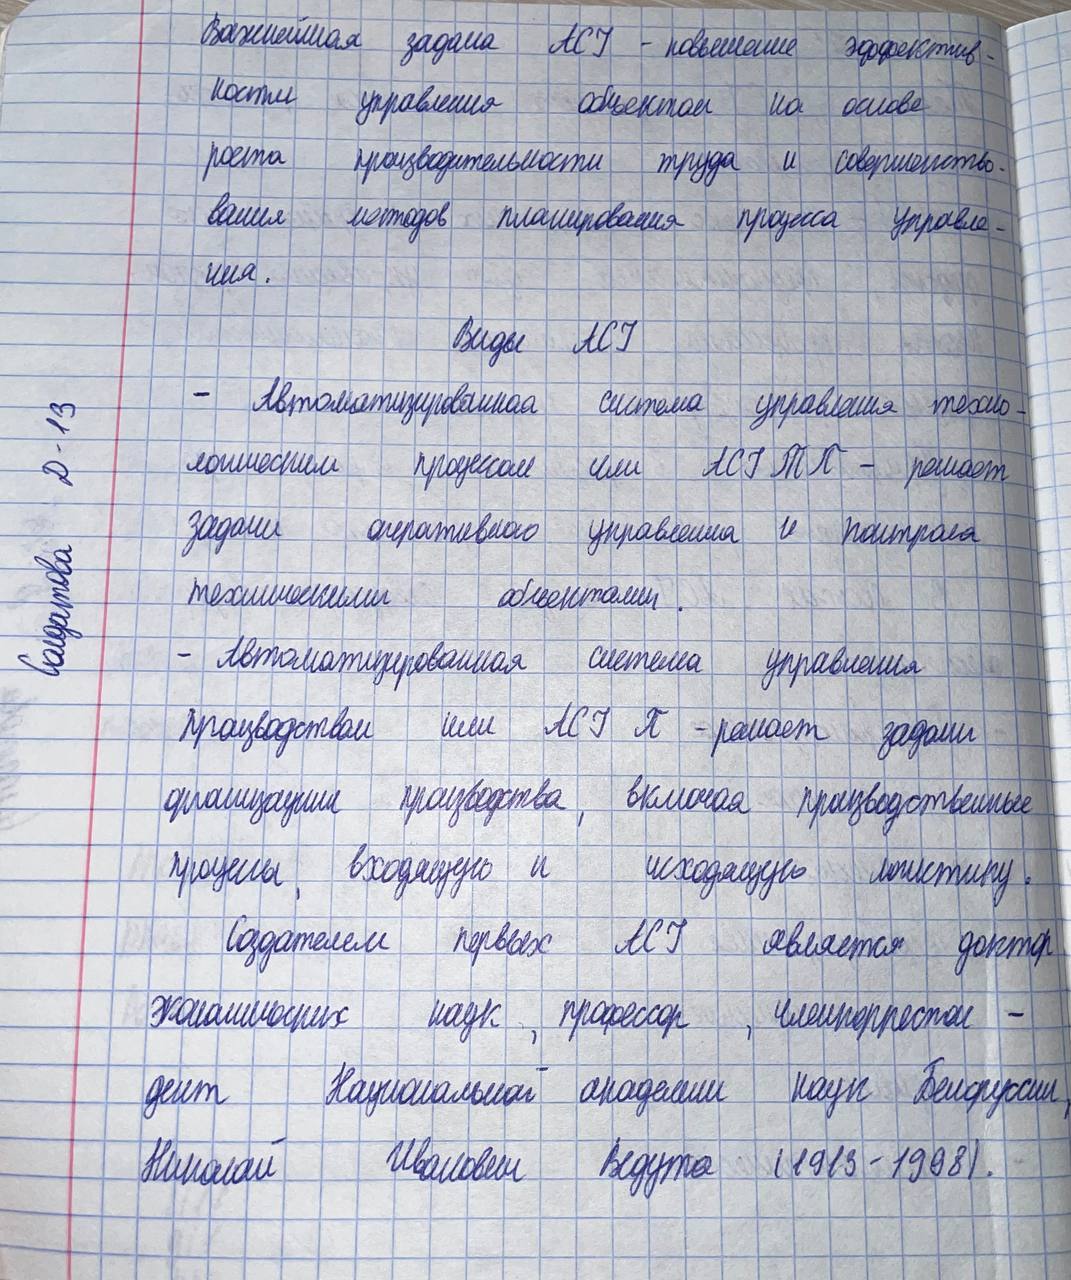 Важнейшая задача АСУ - повышение эффектив-
ности управления объектом на основе
роста производительности труда и совершенство-
вания методов планирования процесса управле-
ния.
Виды АСУ
- Автоматизированная система управления техно-
логическим процессом или АСУ ТП - решает
задачи оперативного управления и контроля
техническими объектами.
- Автоматизированная система управления
производством или АСУ П - решает задачи
организации производства, включая производственные
процессы, входящую и исходящую логистику.
Создателем первых АСУ является доктор
экономических наук, профессор, членкорреспон-
дент Национальной академии наук Белоруссии,
Николай Иванович Ведута (1913-1998).
Солдатова Д-13